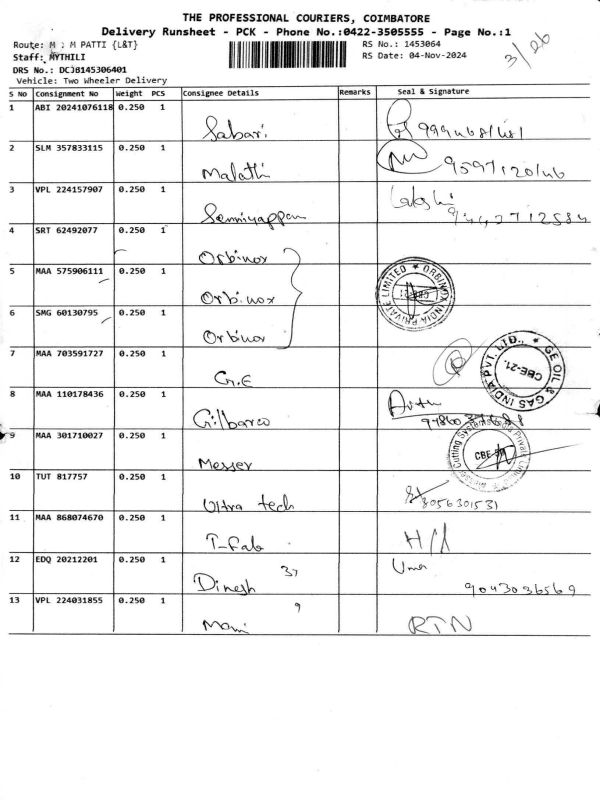 THE PROFESSIONAL COURIERS, COIMBATORE
Delivery Runsheet - PCK - Phone No.:0422-3505555 - Page No.:1
Route: M : M PATTI {L&T}
RS No.: 1453064
3/26
Staff: MYTHILI
RS Date: 04-Nov-2024
DRS No.: DC)8145306401
Vehicle: Two Wheeler Delivery
S No Consignment No Weight PCS Consignee Details Remarks Seal & Signature
1 ABI 20241076118 0.250 1
Sabari
2 SLM 357833115 0.250 1
Malathi 9597120146
3 VPL 224157907 0.250 1
Senniyappan
4 SRT 62492077 0.250 1
Orbinox
5 MAA 575906111 0.250 1
Orbinox
ORBINOX INDIA PRIVATE LIMITED
6 SMG 60130795 0.250 1
Orbinox
7 MAA 703591727 0.250 1
G.E
GE OIL & GAS INDIA PVT. LTD., CBE-21.
8 MAA 110178436 0.250 1
Gilbarco
9 MAA 301710027 0.250 1
Messer
Cutting Systems India Private CBE
10 TUT 817757 0.250 1
Ultra tech 8056301531
11 MAA 868074670 0.250 1
T-Fab
12 EDQ 20212201 0.250 1
Dinesh 37 Uma 9043036569
13 VPL 224031855 0.250 1
Mani 9 RTN